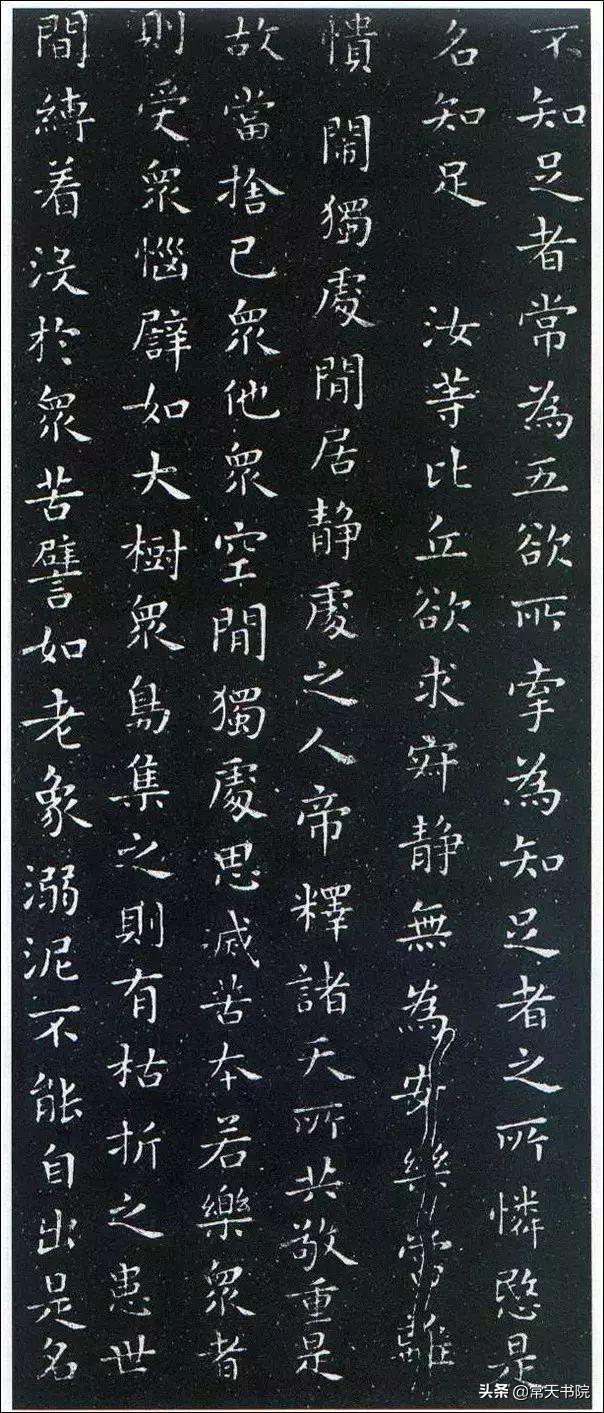 不知足者常為五欲所牽為知足者之所憐愍是
名知足 汝等比丘欲求寂靜無為安樂當離
憒閙獨處閒居静處之人帝釋諸天所共敬重是
故當捨已眾他眾空閒獨處思滅苦本若樂眾者
則受眾惱譬如大樹眾鳥集之則有枯折之患世
間縛着没於眾苦譬如老象溺泥不能自出是名
头条 @常天书院